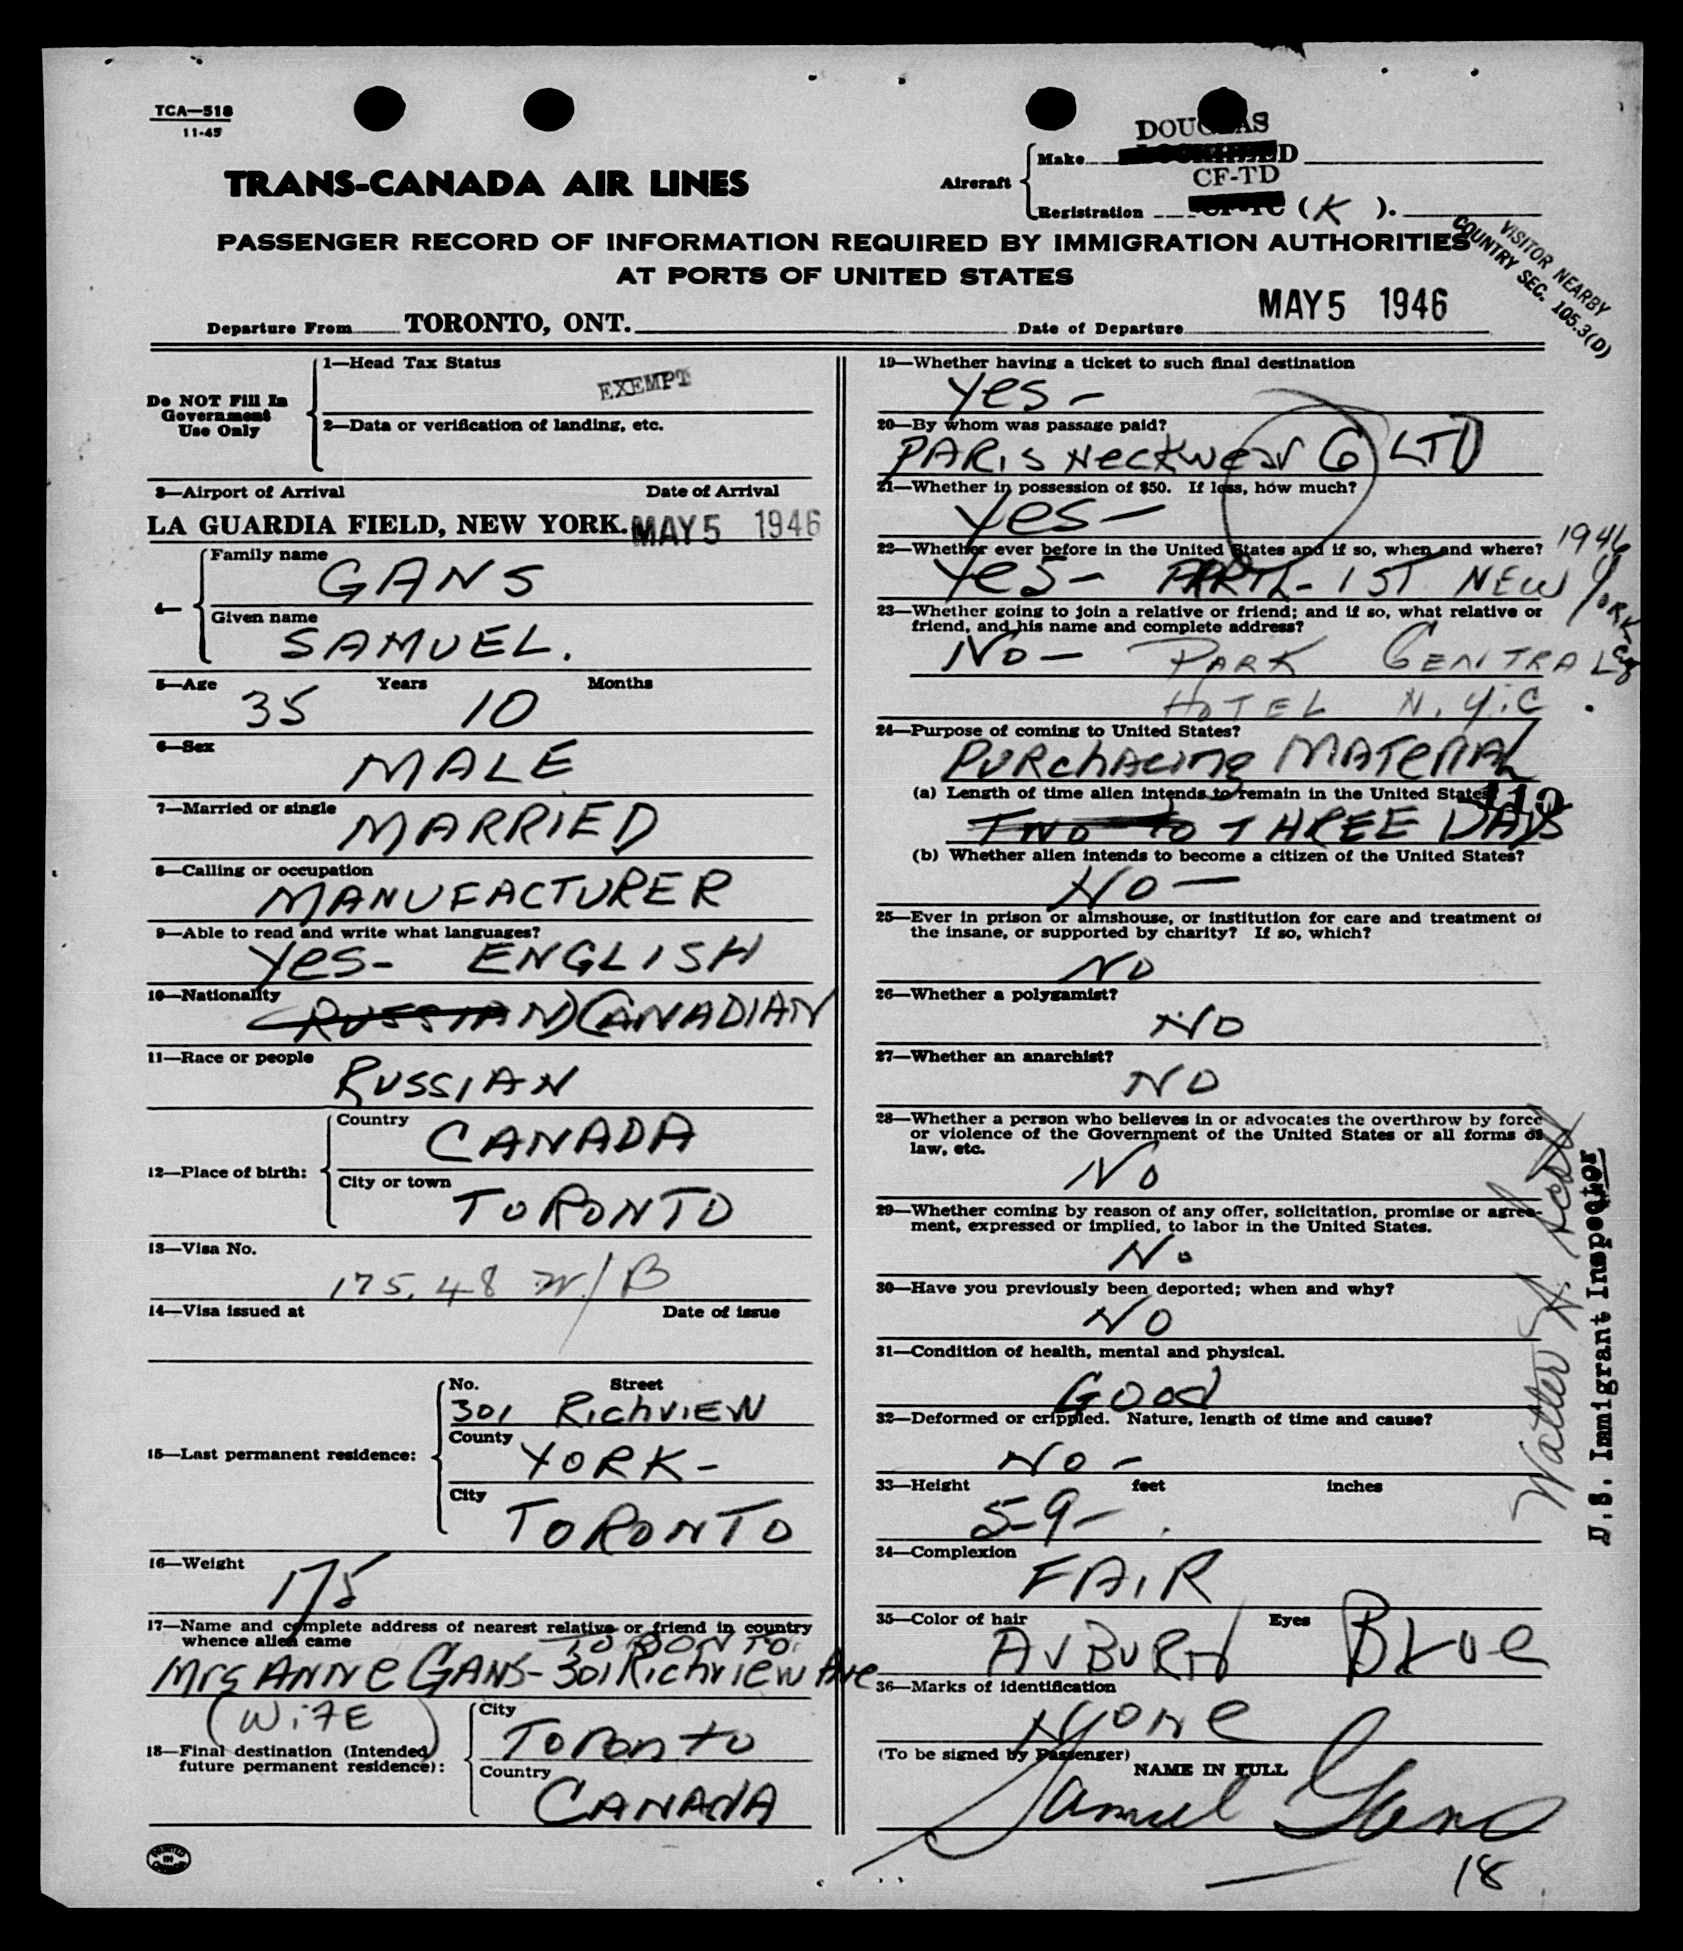 TCA—518
11-45
DOUGLAS
Aircraft
Make
D
TRANS-CANADA AIR LINES
CF-TD
Registration
CF-TC (K).
PASSENGER RECORD OF INFORMATION REQUIRED BY IMMIGRATION AUTHORITIES
AT PORTS OF UNITED STATES
VISITOR NEARBY
COUNTRY SEC. 105.3(D)
Departure From TORONTO, ONT.
Date of Departure MAY 5 1946
Do NOT Fill In
Government
Use Only
1—Head Tax Status
EXEMPT
2—Data or verification of landing, etc.
3—Airport of Arrival Date of Arrival
LA GUARDIA FIELD, NEW YORK. MAY 5 1946
4—
Family name
GANS
Given name
SAMUEL.
5—Age Years Months
35 10
6—Sex
MALE
7—Married or single
MARRIED
8—Calling or occupation
MANUFACTURER
9—Able to read and write what languages?
Yes- ENGLISH
10—Nationality
RUSSIAN) CANADIAN
11—Race or people
RUSSIAN
12—Place of birth:
Country
CANADA
City or town
TORONTO
13—Visa No.
175.48 W/B
14—Visa issued at Date of issue
15—Last permanent residence:
No. Street
301 RichVIEW
County
YORK-
City
TORONTO
16—Weight
175
17—Name and complete address of nearest relative or friend in country
whence alien came
TORONTO.
Mrs ANNE GANS- 301 Richview Ave
(WiFE)
18—Final destination (Intended
future permanent residence):
City
Toronto
Country
CANADA
PRINTED
IN
CANADA
19—Whether having a ticket to such final destination
Yes-
20—By whom was passage paid?
PARIS NeckweAr Co LTD
21—Whether in possession of $50. If less, how much?
Yes-
22—Whether ever before in the United States and if so, when and where?
1946
Yes- APRIL- 1ST NEW YORK
23—Whether going to join a relative or friend; and if so, what relative or
friend, and his name and complete address?
No- PARK CENTRAL
HOTEL N.Y.C.
24—Purpose of coming to United States?
PURchAcing MATERIAL
(a) Length of time alien intends to remain in the United States?
TWO TO THREE DAYS
(b) Whether alien intends to become a citizen of the United States?
NO-
25—Ever in prison or almshouse, or institution for care and treatment of
the insane, or supported by charity? If so, which?
NO
26—Whether a polygamist?
NO
27—Whether an anarchist?
NO
28—Whether a person who believes in or advocates the overthrow by force
or violence of the Government of the United States or all forms of
law, etc.
No
29—Whether coming by reason of any offer, solicitation, promise or agree-
ment, expressed or implied, to labor in the United States.
No
30—Have you previously been deported; when and why?
NO
31—Condition of health, mental and physical.
Good
32—Deformed or crippled. Nature, length of time and cause?
No-
33—Height feet inches
5-9-
34—Complexion
FAIR
35—Color of hair Eyes
AUBURN BLUE
36—Marks of identification
NONE
(To be signed by Passenger)
NAME IN FULL
Samuel Gans
18
Walter A. Scott
U.S. Immigrant Inspector